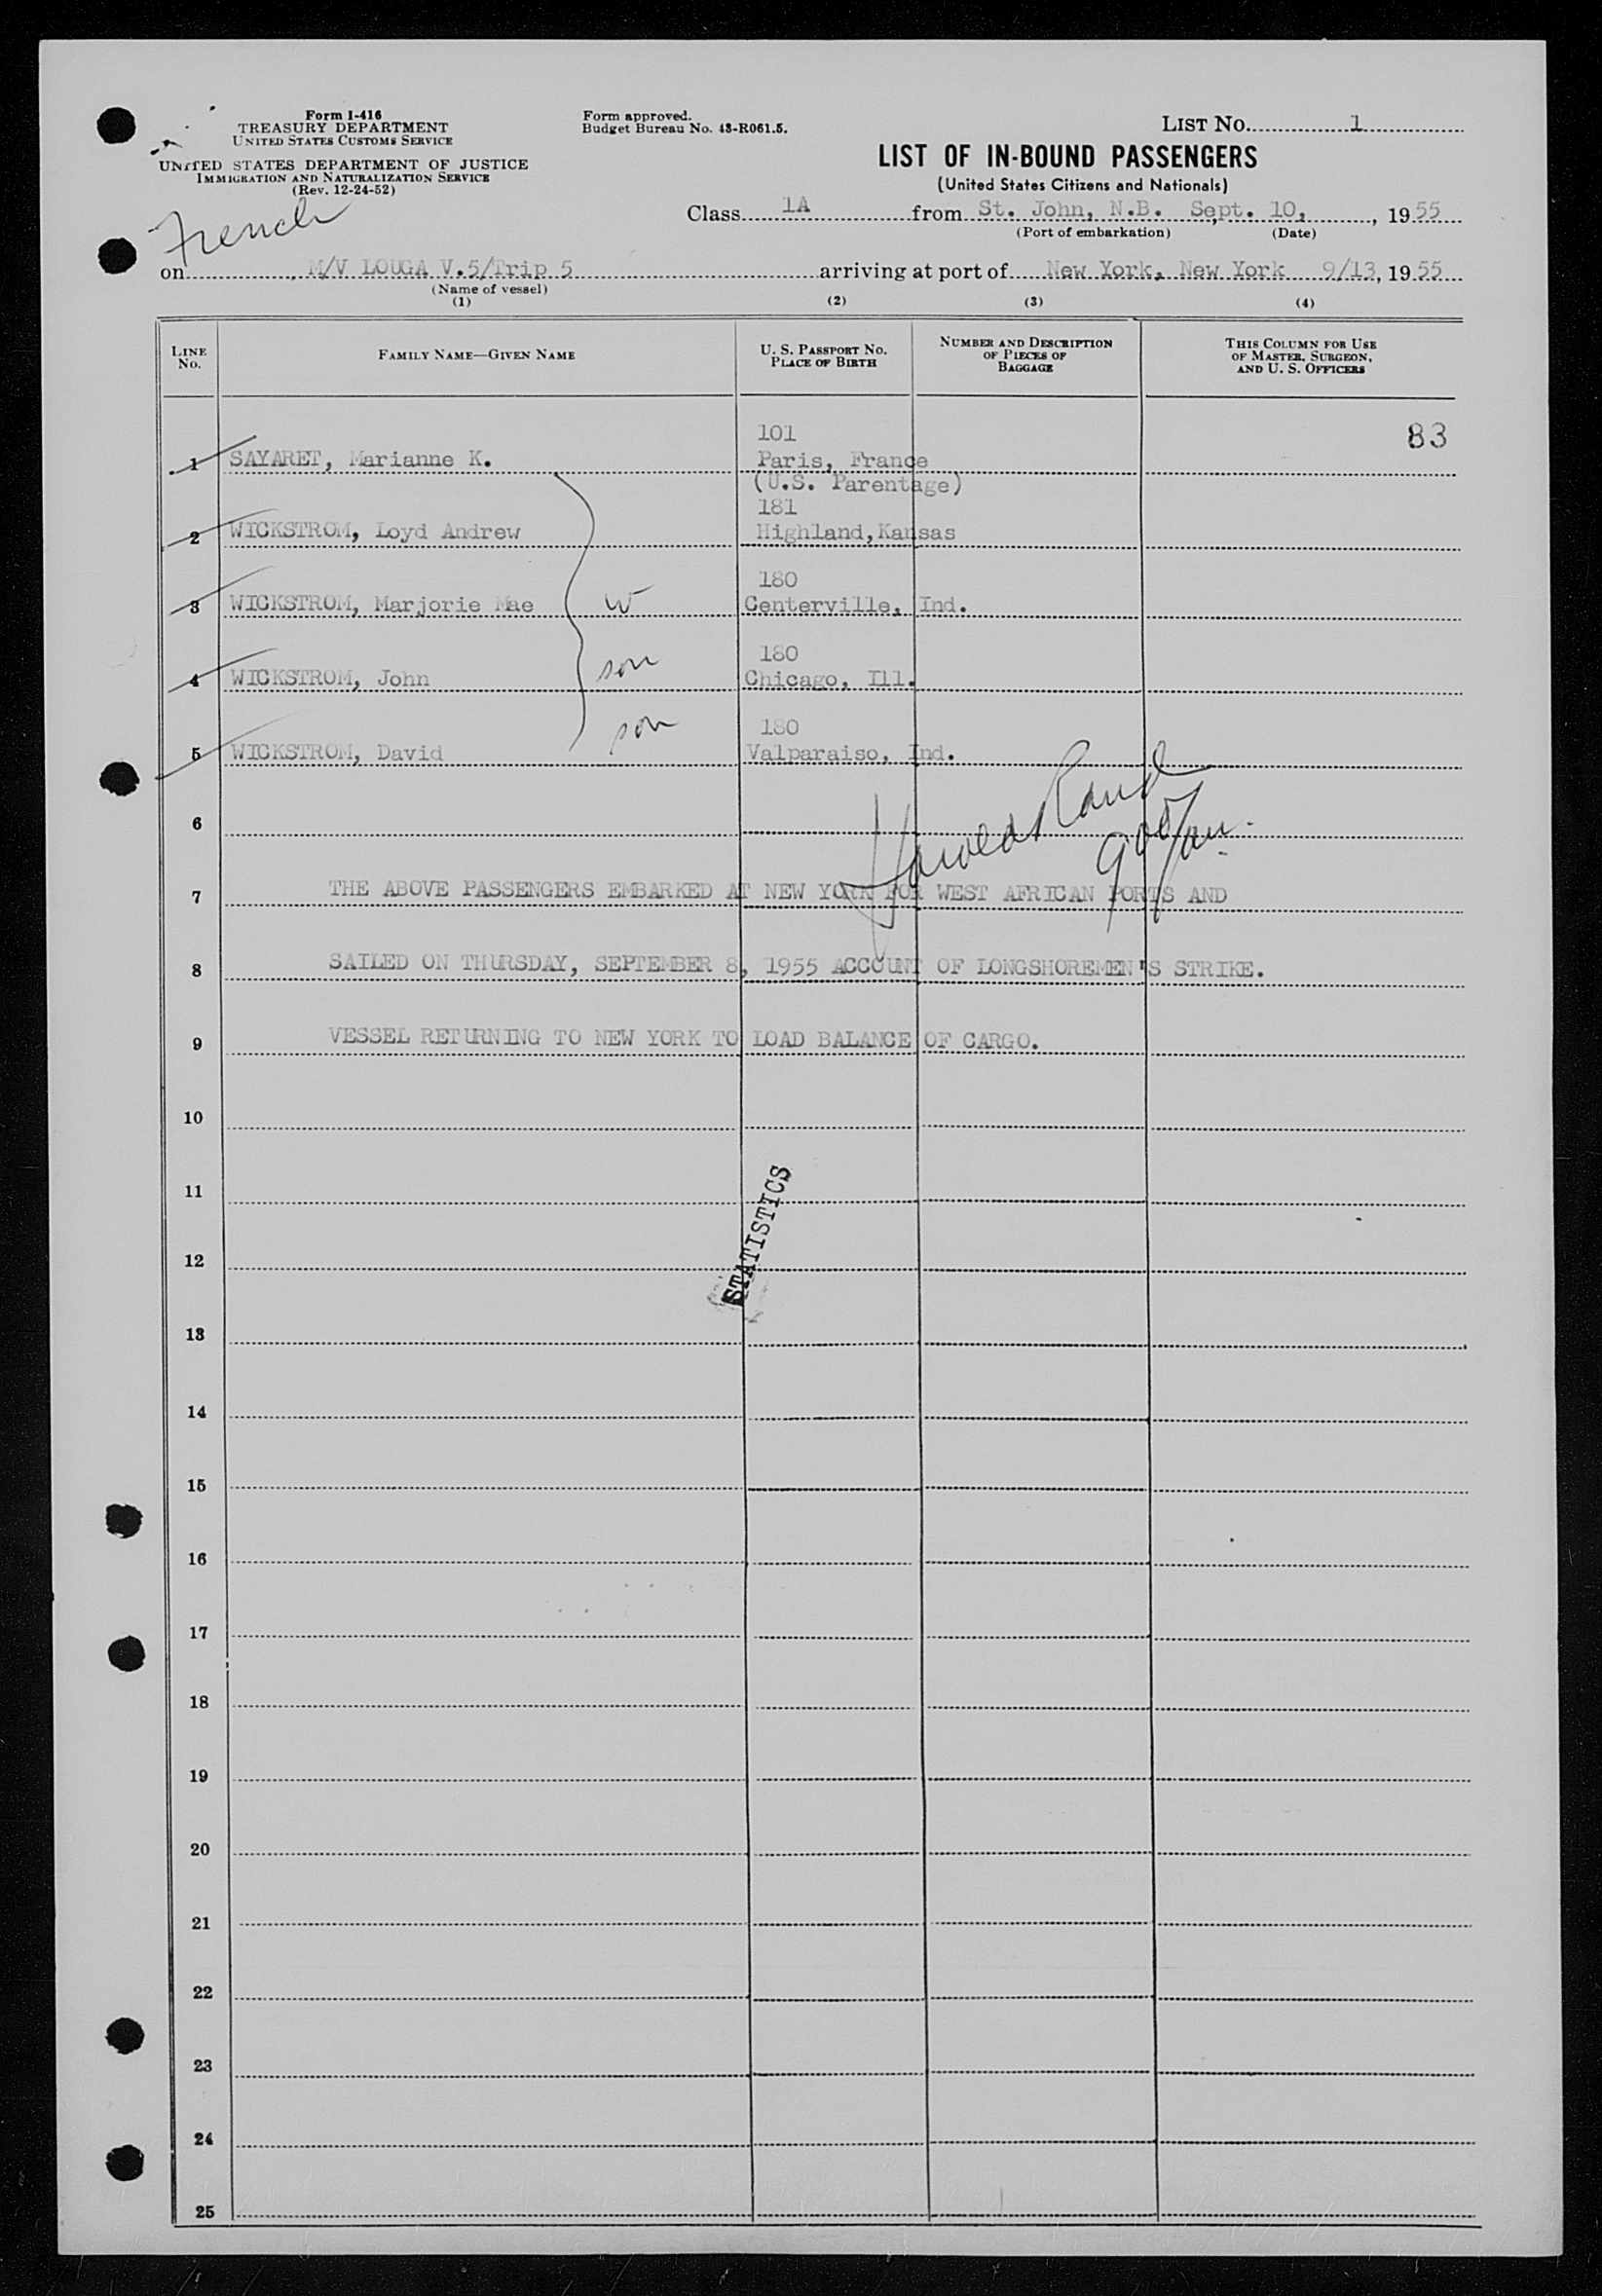 Form I-416
TREASURY DEPARTMENT
UNITED STATES CUSTOMS SERVICE
UNITED STATES DEPARTMENT OF JUSTICE
IMMIGRATION AND NATURALIZATION SERVICE
(Rev. 12-24-52)
Form approved.
Budget Bureau No. 43-R061.5.
LIST No. 1
LIST OF IN-BOUND PASSENGERS
(United States Citizens and Nationals)
French
Class 1A from St. John, N.B. Sept. 10, , 1955
(Port of embarkation) (Date)
on M/V LOUGA V.5/Trip 5 arriving at port of New York, New York 9/13, 1955
(Name of vessel)
(1) (2) (3) (4)
LINE No. FAMILY NAME—GIVEN NAME U. S. PASSPORT No. PLACE OF BIRTH NUMBER AND DESCRIPTION OF PIECES OF BAGGAGE THIS COLUMN FOR USE OF MASTER, SURGEON, AND U. S. OFFICERS
101 83
1 SAYARET, Marianne K. Paris, France
(U.S. Parentage)
181
2 WICKSTROM, Loyd Andrew Highland, Kansas
180
3 WICKSTROM, Marjorie Mae W Centerville, Ind.
180
4 WICKSTROM, John son Chicago, Ill.
180
5 WICKSTROM, David son Valparaiso, Ind.
6
7 THE ABOVE PASSENGERS EMBARKED AT NEW YORK FOR WEST AFRICAN PORTS AND
8 SAILED ON THURSDAY, SEPTEMBER 8, 1955 ACCOUNT OF LONGSHOREMEN'S STRIKE.
9 VESSEL RETURNING TO NEW YORK TO LOAD BALANCE OF CARGO.
10
11
STATISTICS
12
13
14
15
16
17
18
19
20
21
22
23
24
25